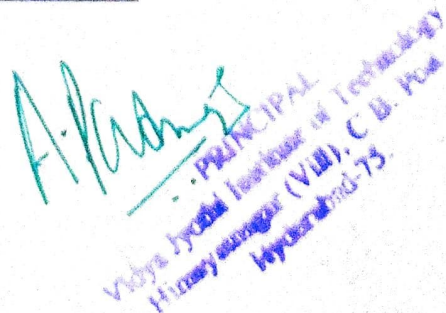 PRINCIPAL
Vidya Jyothi Institute of Technology
Himayatnagar (Vill), C.B. Post
Hyderabad-75.